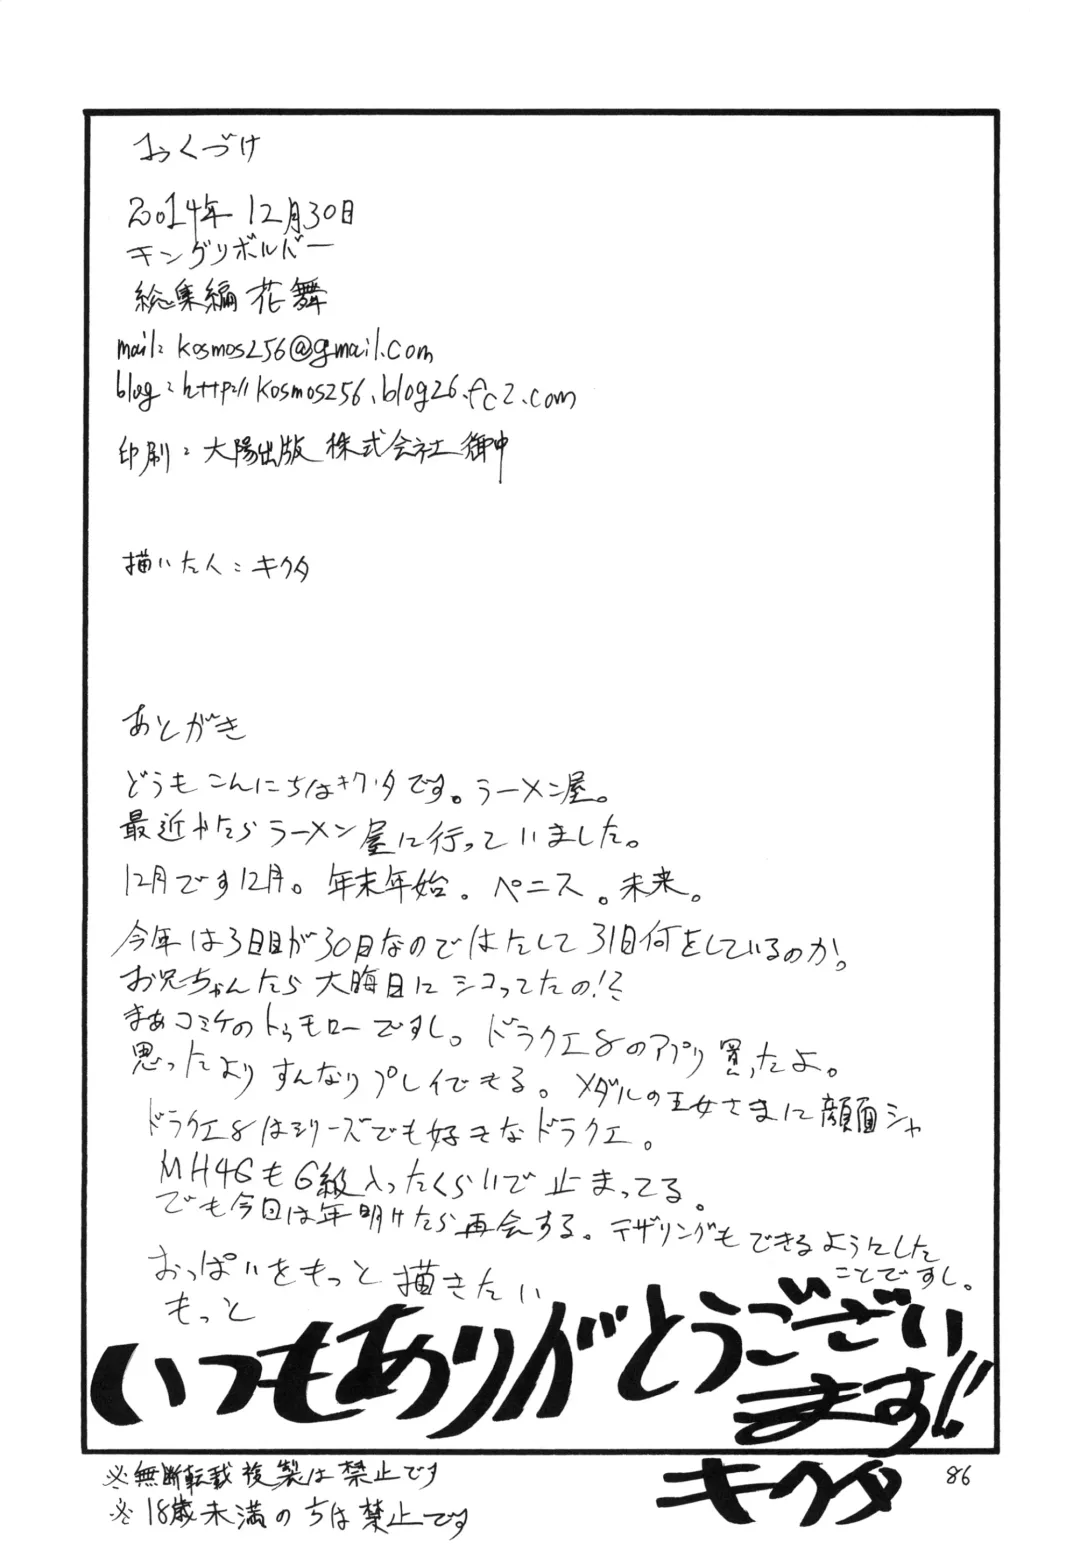 おくづけ
2014年 12月30日
キングリボルバー
総集編 花舞
mail: kosmos256@gmail.com
blog: http://kosmos256.blog26.fc2.com
印刷: 大陽出版 株式会社 御中
描いた人: キクタ
あとがき
どうもこんにちはキクタです。ラーメン屋。
最近やたらラーメン屋に行っていました。
12月です12月。年末年始。ペニス。未来。
今年は3日目が30日なのではたして31日何をしているのか。
お兄ちゃんたら大晦日にシコってたの!?
まぁコミケのトゥモローですし。ドラクエ8のアプリ買ったよ。
思ったよりすんなりプレイできる。メダルの王女さまに顔面シャ
ドラクエ8はシリーズでも好きなドラクエ。
MH4GもG級入ったくらいで止まってる。
でも今回は年明けたら再会する。テザリングもできるようにした
ことですし。
おっぱいをもっと描きたい
もっと
いつもありがとうござい
ます!!
キクタ
※無断転載複製は禁止です
※18歳未満のちは禁止です
86